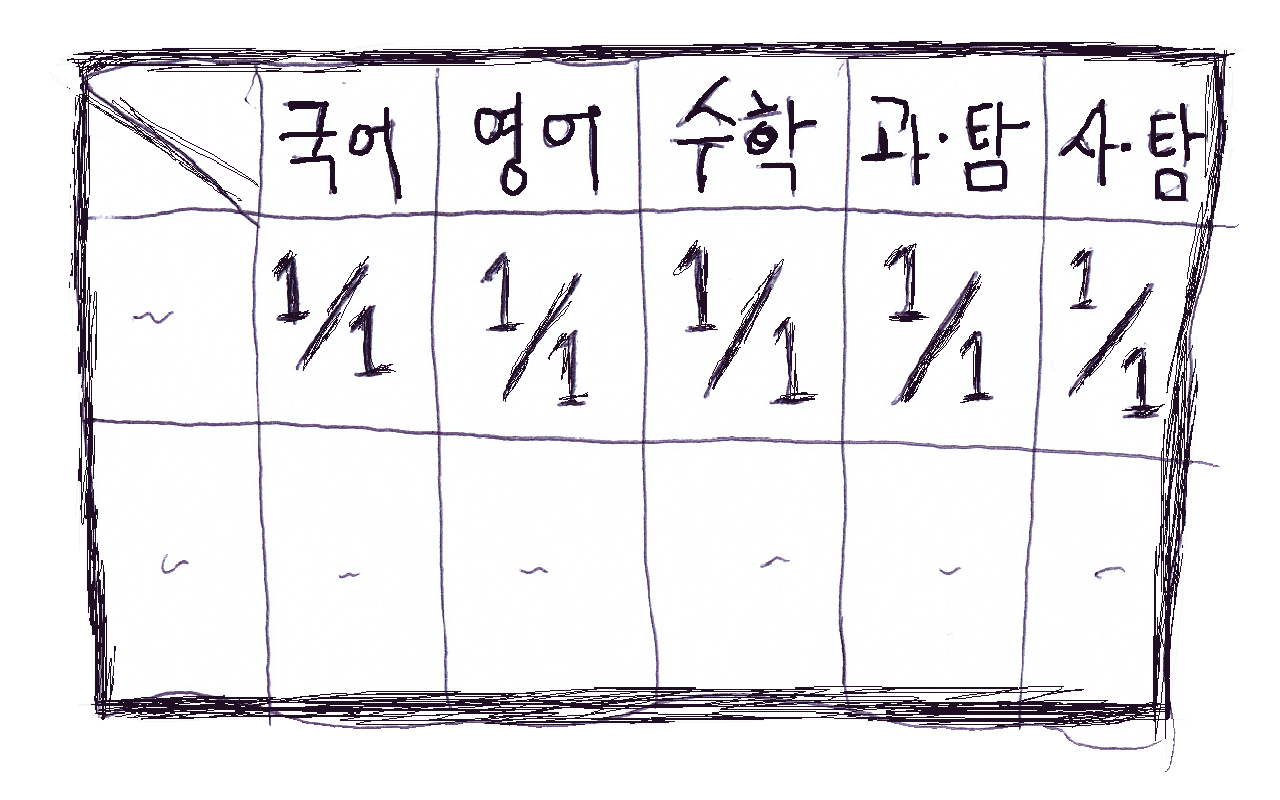 국어 영어 수학 과·탐 사·탐
~ 1/1 1/1 1/1 1/1 1/1